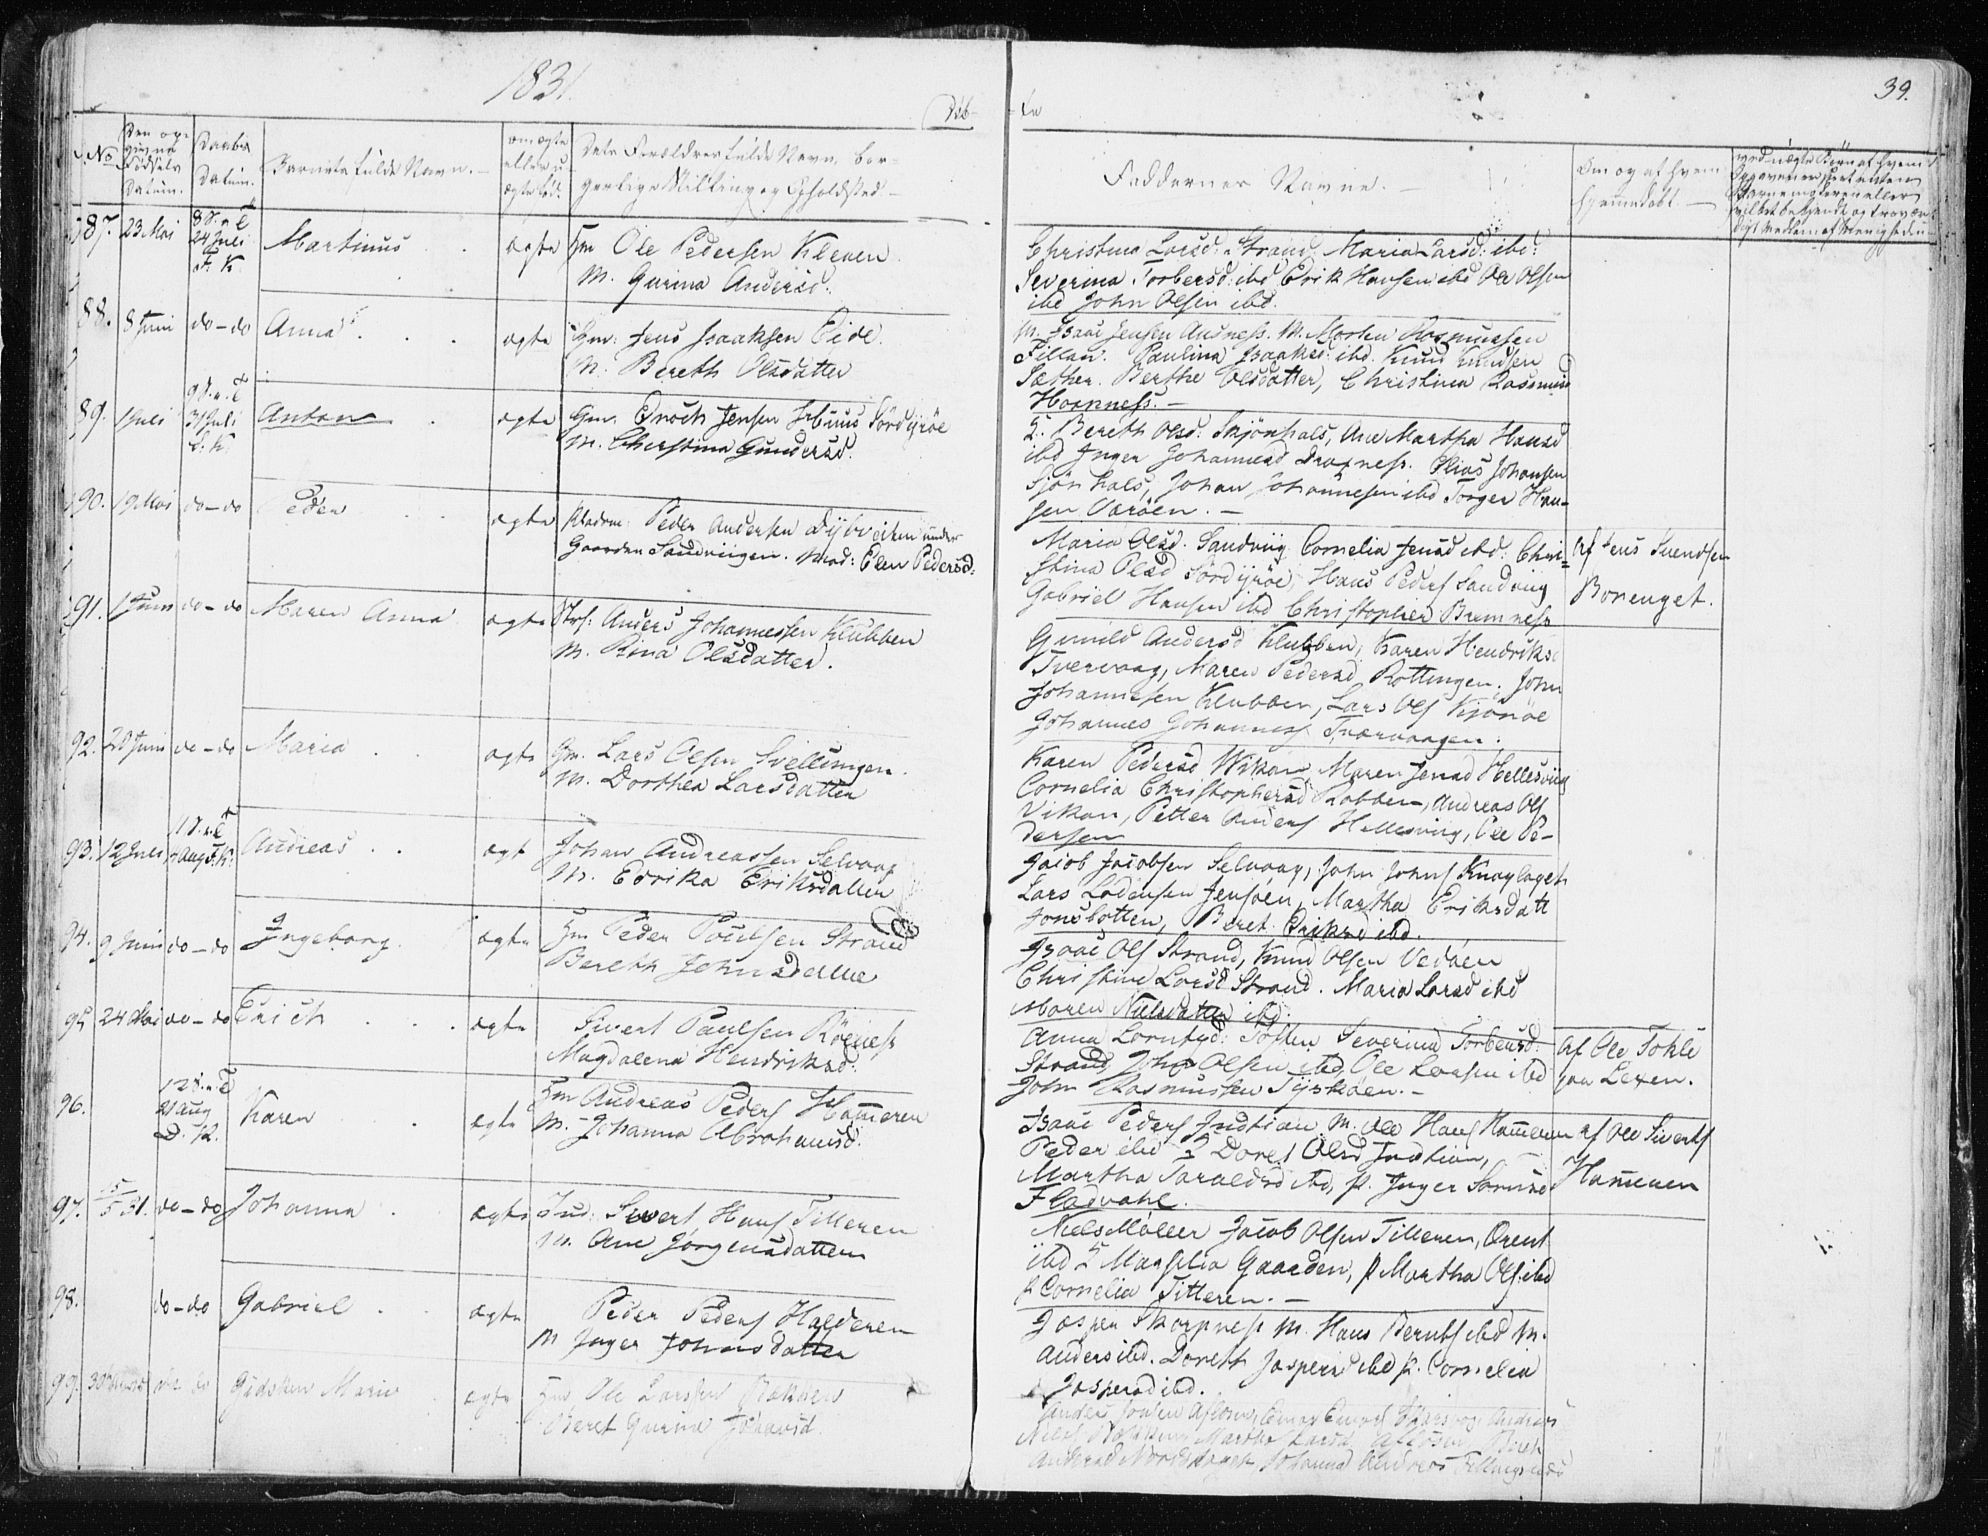 1831.
Døb-
te
39.
No
Den op-
givne
Fødsels
Datum.
Daabs
Datum.
Barnets fulde Navn. -
om ægte
eller u-
ægte fød.
Dets Forældres fulde Navn, bor-
gerlige Stilling og Opholdsted -
Faddernes Navne. -
Om og af hvem
hjemmedøbt. -
87. 23 Mai 8 S. n. T 24 Juli F. K. Martinus ægte Hm Ole Pedersen Kleven
M. Gurina Andersd:
Christina Larsd: Strand Maria Larsd: ibd:
Severina Torbersd: ibd Erik Hansen ibd Ole Olsen
ibd John Olsen ibd.
88. 8 Juni do-do Anna ægte Gm: Jens Isaaksen Eide.
M: Bereth Olsdatter
M. Isaac Jensen Andness. M. Morten Rasmussen
Fillan. Paulina Isaaksd: ibd. Knud Knudsen
Sæther. Berthe Olsdatter, Christina Rasmusd
Hopness. -
89. 1 Juli 9 S. n. T 31 Juli Anton ægte Gm. Enoch Jensen Sørdyrøe
M. Christina Gundersd.
Bereth Olsd: Skjønhals, Ane Martha Hansd
ibd Inger Johannesd Dragness. Elias Johansen
Sjønhals, Johan Johannesen ibd Torger Han-
sen Varøen. -
90. 19 Mai do-do Peder ægte Peder Andersen Dybviken under
Gaarden Sandviigen. Mod: Elen Pedersd:
Maria Olsd. Sandviig Cornelia Jensd ibd: Chri-
stina Olsd Sørdyrøe, Hans Peders Sandviig
Gabriel Hansen ibd Christopher Bremnes
Af Jens Svendsen
Borenget.
91. 1 Juni do-do Maren Anna ægte Strf: Anders Johannessen Klubben
M. Rina Olsdatter.
Gunild Andersd Klubben, Karen Hendriksd
Tvervaag, Maren Pedersd Rottingen, John
Johannesen Klubben, Lars Ols Kjønøe
Johannes Johannes Tværvaagen.
92. 20 Juni do-do Maria ægte Gm. Lars Olsen Svellingen.
M. Dorthea Larsdatter
Karen Pedersd Wikan, Maren Jensd Hellesviig
Cornelia Christophersd Robben, Andreas Ols
Vikan, Petter Anders Hellesviig, Ole Pe-
dersen
93. 12 Juli 10 S. n. T 7 Aug S. K. Andreas ægt Johan Andreassen Selvaag
M. Edrika Eriksdatter
Jacob Jacobsen Selvaag, John Johns Knaplaget
Lars Lodensen Jensøen, Martha Eriksdatt
Jonsbotten, Beret Eriksd ibd.
94. 9 Juni do-do Ingeborg. ægte Hm Peder Poulsen Strand
Bereth Johnsdatter
Isaac Ols Strand, Knud Olsen Vedøen
Christine Larsd Strand. Maria Larsd ibd
Maren Nielsdatter ibd:
95 24 Mai do-do Erich ægte Sivert Paulsen Røeness
Magdalena Hendriksd:
Anna Lorntsd: Toften Severina Torbensd:
Strand John Olsen ibd, Ole Larsen ibd
John Rasmussen Tyskøen. -
af Ole Tohle
paa Lexen.
96. 12 S. n. T 21 Aug D. K. Karen ægte Hm Andreas Peders Hammeren
M. Johanna Abrahamsd:
Isaac Peders Indtian M. Ole Hans Hammeren
Peder ibd Doret Olsd Indtian,
Martha Taraldsd ibd, P. Inger
Fladvahl.
af Ole Siverts
Hammeren
97. 15/5 31. do-do Johanna ægte Ind: Sivert Hans Titteren
M. Ane Jørgensdatter
Niels Møller Jacob Olsen Titteren, Arent
ibd Marselia Gaarden, P Martha Ols. ibd
P Cornelia Titteren. -
98. do-do Gabriel ægte Peder Peders Halderen
M Inger Johnsdatter
Jasper Skarpness M. Hans Bernts ibd M.
Anders ibd. Doreth Jaspersd ibd P. Cornelia
Jaspersd ibd.
99. do Gidsken Marie ægte Hm Ole Larssen
Beret Gurine Johansd.